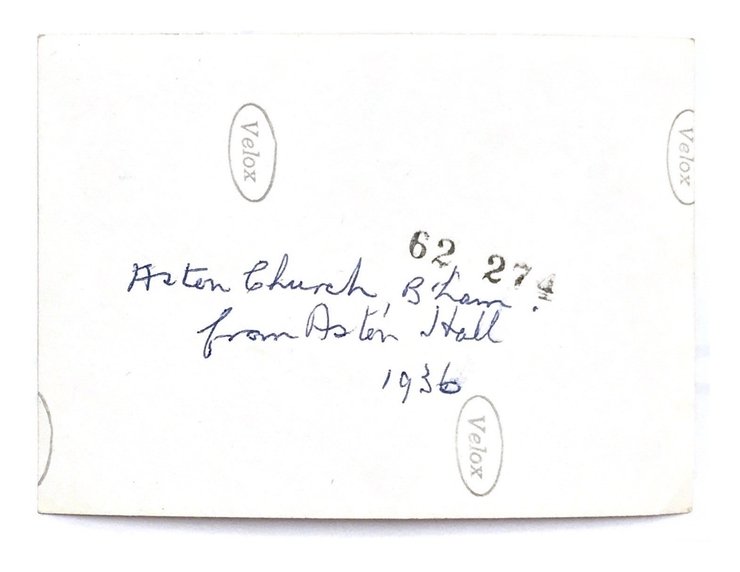 Velox
Velox
62 274
Aston Church, B'ham
from Aston Hall
1936
Velox